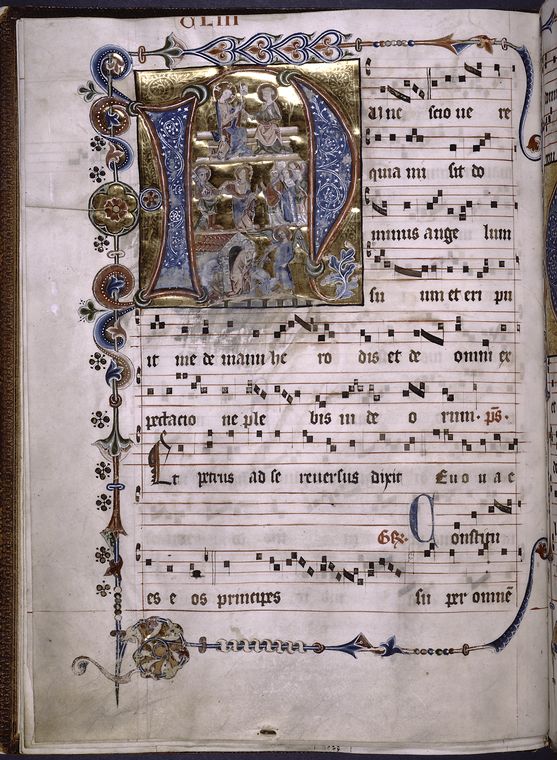 CLIII
N
unc scio ve re
quia mi sit do
minus ange lum
su um et eri pu
it me de manu he ro dis et de omni ex
pectacio ne ple bis iu de o rum. ps.
Et petrus ad se reversus dixit Euouae
Gr. Constitu
es e os principes su per omnē